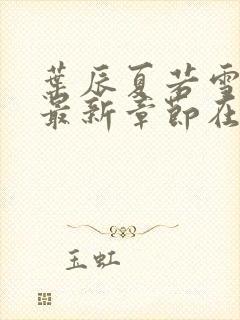 葉辰夏若雪
最新章節在
玉虹